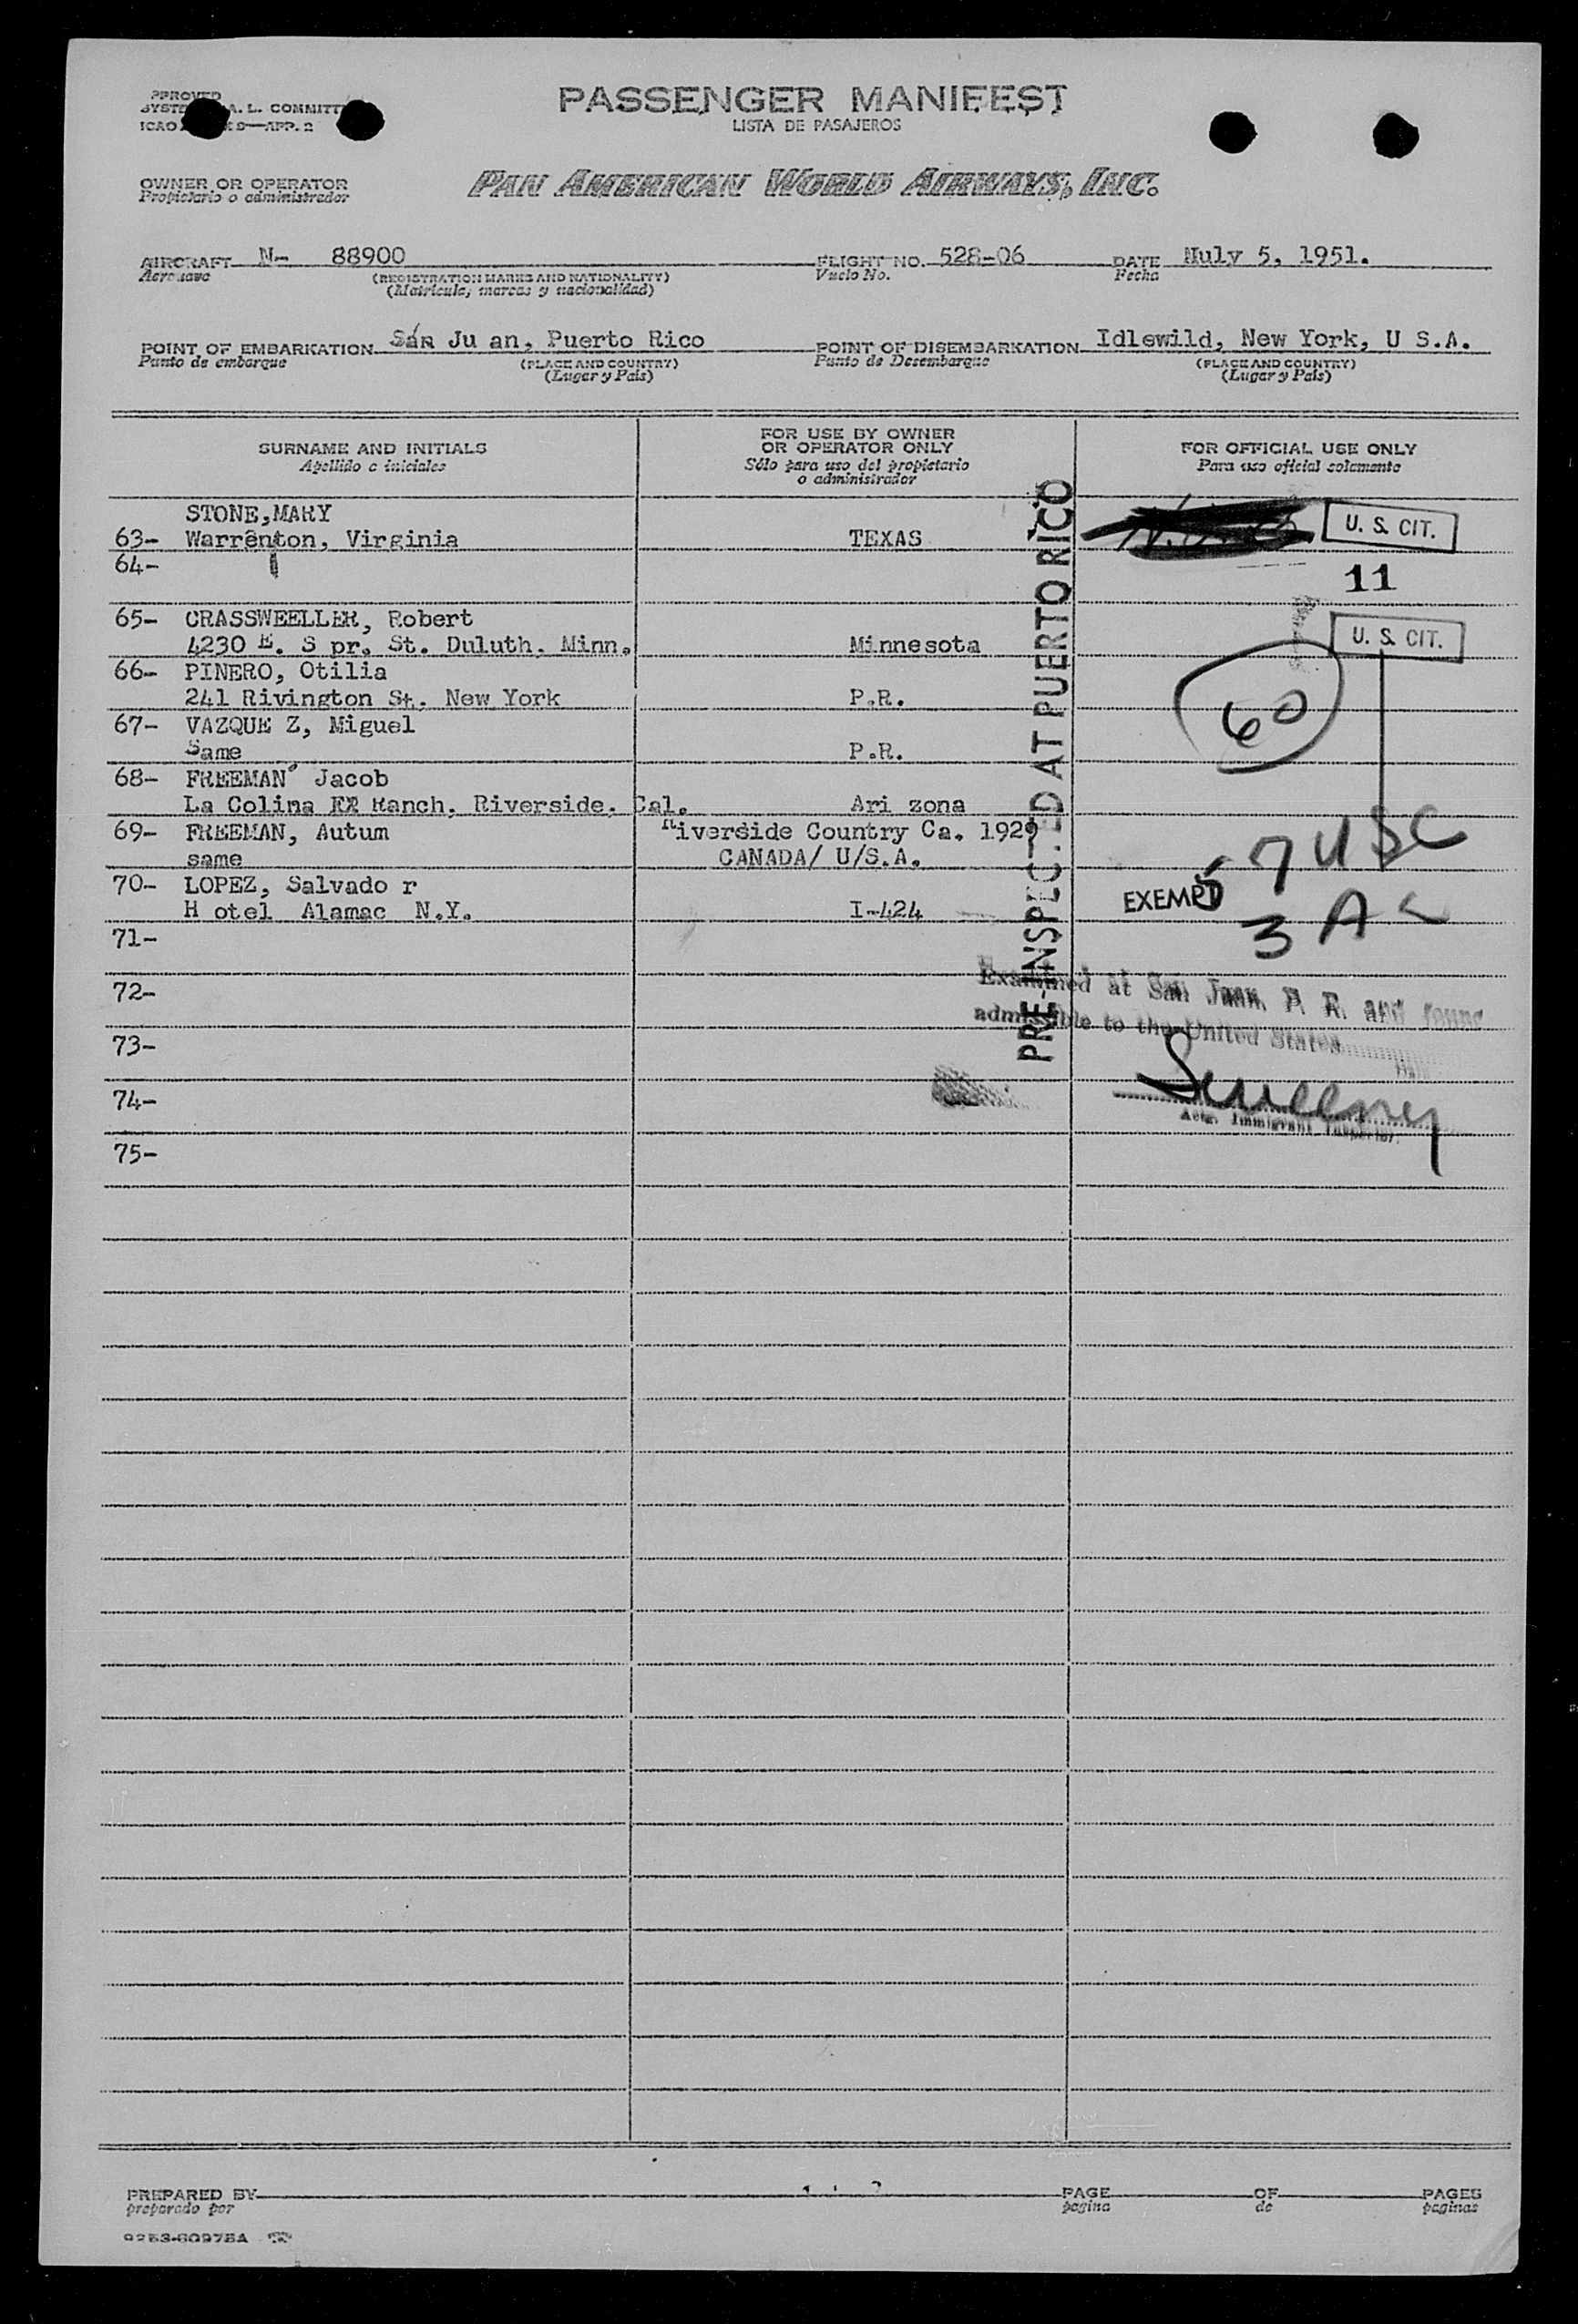 PASSENGER MANIFEST
LISTA DE PASAJEROS
OWNER OR OPERATOR
Propietario o administrador
PAN AMERICAN WORLD AIRWAYS, INC.
AIRCRAFT N- 88900 FLIGHT NO. 528-06 DATE Nuly 5, 1951.
Aeronave (REGISTRATION MARKS AND NATIONALITY) Vuelo No. Fecha
(Matrícula, marcas y nacionalidad)
POINT OF EMBARKATION San Ju an, Puerto Rico POINT OF DISEMBARKATION Idlewild, New York, U S.A.
Punto de embarque (PLACE AND COUNTRY) Punto de Desembarque (PLACE AND COUNTRY)
(Lugar y País) (Lugar y País)
SURNAME AND INITIALS FOR USE BY OWNER OR OPERATOR ONLY FOR OFFICIAL USE ONLY
Apellido e iniciales Sólo para uso del propietario o administrador Para uso oficial solamente
STONE,MARY
63- Warrenton, Virginia TEXAS U. S. CIT.
64- 11
65- CRASSWEELLER, Robert U. S. CIT.
4230 E. S pr. St. Duluth, Minn. Minnesota
66- PINERO, Otilia
241 Rivington St. New York P.R. 60
67- VAZQUE Z, Miguel
Same P.R.
68- FREEMAN Jacob
La Colina Ranch, Riverside, Cal. Ari zona
69- FREEMAN, Autum Riverside Country Ca. 1929 7 USC
same CANADA/ U/S.A.
70- LOPEZ, Salvado r EXEMPT
H otel Alamac N.Y. I-424 3 A
71-
72- Examined at San Juan, P. R. and found
admissible to the United States
73-
74- Sweeney
Actg. Immigrant Inspector.
75-
PRE-INSPECTED AT PUERTO RICO
PREPARED BY PAGE OF PAGES
preparado por página de páginas